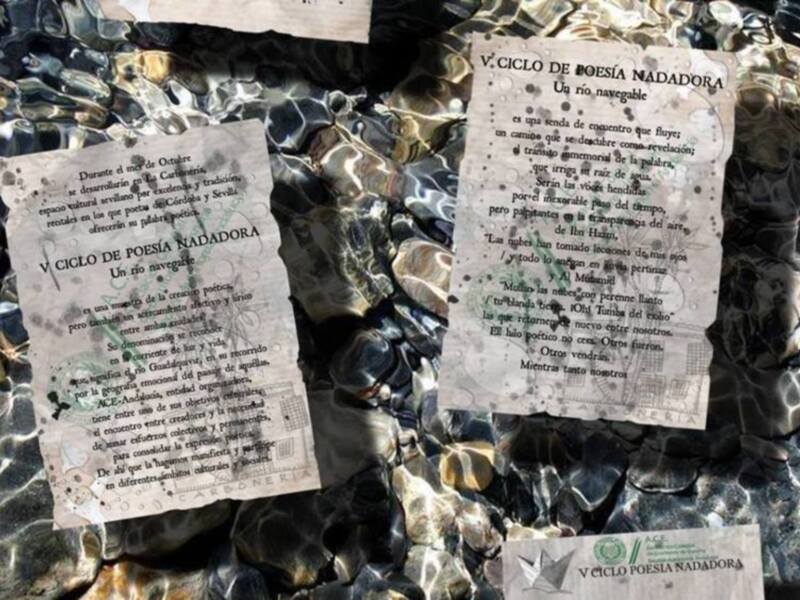 Durante el mes de Octubre
se desarrollarán en La Carbonería,
espacio cultural sevillano por excelencia y tradición,
rentales en los que poetas de Córdoba y Sevilla
ofrecerán su palabra poética.
V CICLO DE POESÍA NADADORA
Un río navegable
es una muestra de la creación poética,
pero también un acercamiento afectivo y lírico
entre ambas ciudades.
Su denominación se reconoce
en la corriente de luz y vida
que significa el río Guadalquivir, en su recorrido
por la geografía emocional del paisaje de aquéllas.
ACE-Andalucía, entidad organizadora,
tiene entre uno de sus objetivos
el encuentro entre creadores y la necesidad
de aunar esfuerzos colectivos y permanentes,
para consolidar la expresión poética.
De ahí que la hagamos manifiesta y
en diferentes ámbitos culturales y sociales
CARBONERIA
V CICLO DE POESÍA NADADORA
Un río navegable
es una senda de encuentro que fluye;
un camino que se descubre como revelación;
el tránsito inmemorial de la palabra,
que irriga su raíz de agua.
Serán las voces hendidas
por el inexorable paso del tiempo,
pero palpitantes en la transparencia del aire,
de Ibn Hazm,
"Las nubes han tomado lecciones de mis ojos
/ y todo lo anegan en lluvia pertinaz
"Mullan las nubes con perenne llanto
/ tu blanda tierra, ¡Oh! Tumba del exilio"
las que retornen de nuevo entre nosotros.
El hilo poético no cesa. Otros fueron.
Otros vendrán.
Mientras tanto nosotros
A.C.E.
V CICLO POESIA NADADORA